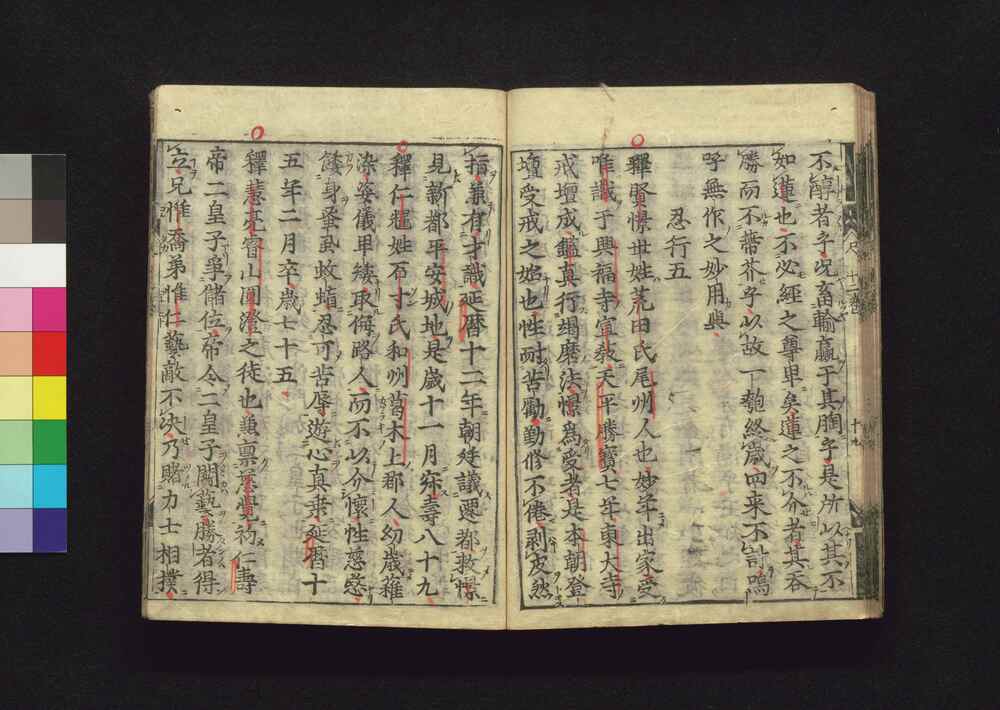 不醇者乎况畜輸贏于其胸乎是所以其不
如蓮也不必經之尊卑矣蓮之不介者其吞
勝而不蔕芥乎以故一匏終歳四来不計嗚
呼無作之妙用與
忍行五
釋賢憬世姓荒田氏尾州人也妙年出家受
唯識于興福寺宣教天平勝寶七年東大寺
戒壇成鑑真行羯磨法憬為受者是本朝登
壇受戒之始也性耐苦勵勤修不倦剥皮然
指兼有才識延暦十二年朝廷議遷都救憬
見新都平安城地是歳十一月寂壽八十九
釋仁𨗉姓石寸氏和州葛木上郡人幼歳薙
染姿儀卑矮取侮路人而不以介懷性慈愍
餧身蚤虱蚊蝱忍可苦辱遊心真乗延暦十
五年二月卒歳七十五
釋慧亮睿山圓澄之徒也兼禀慈覺初仁壽
帝二皇子爭儲位帝令二皇子鬪藝勝者得
立兄惟喬弟惟仁藝敵不决乃賭力士相撲